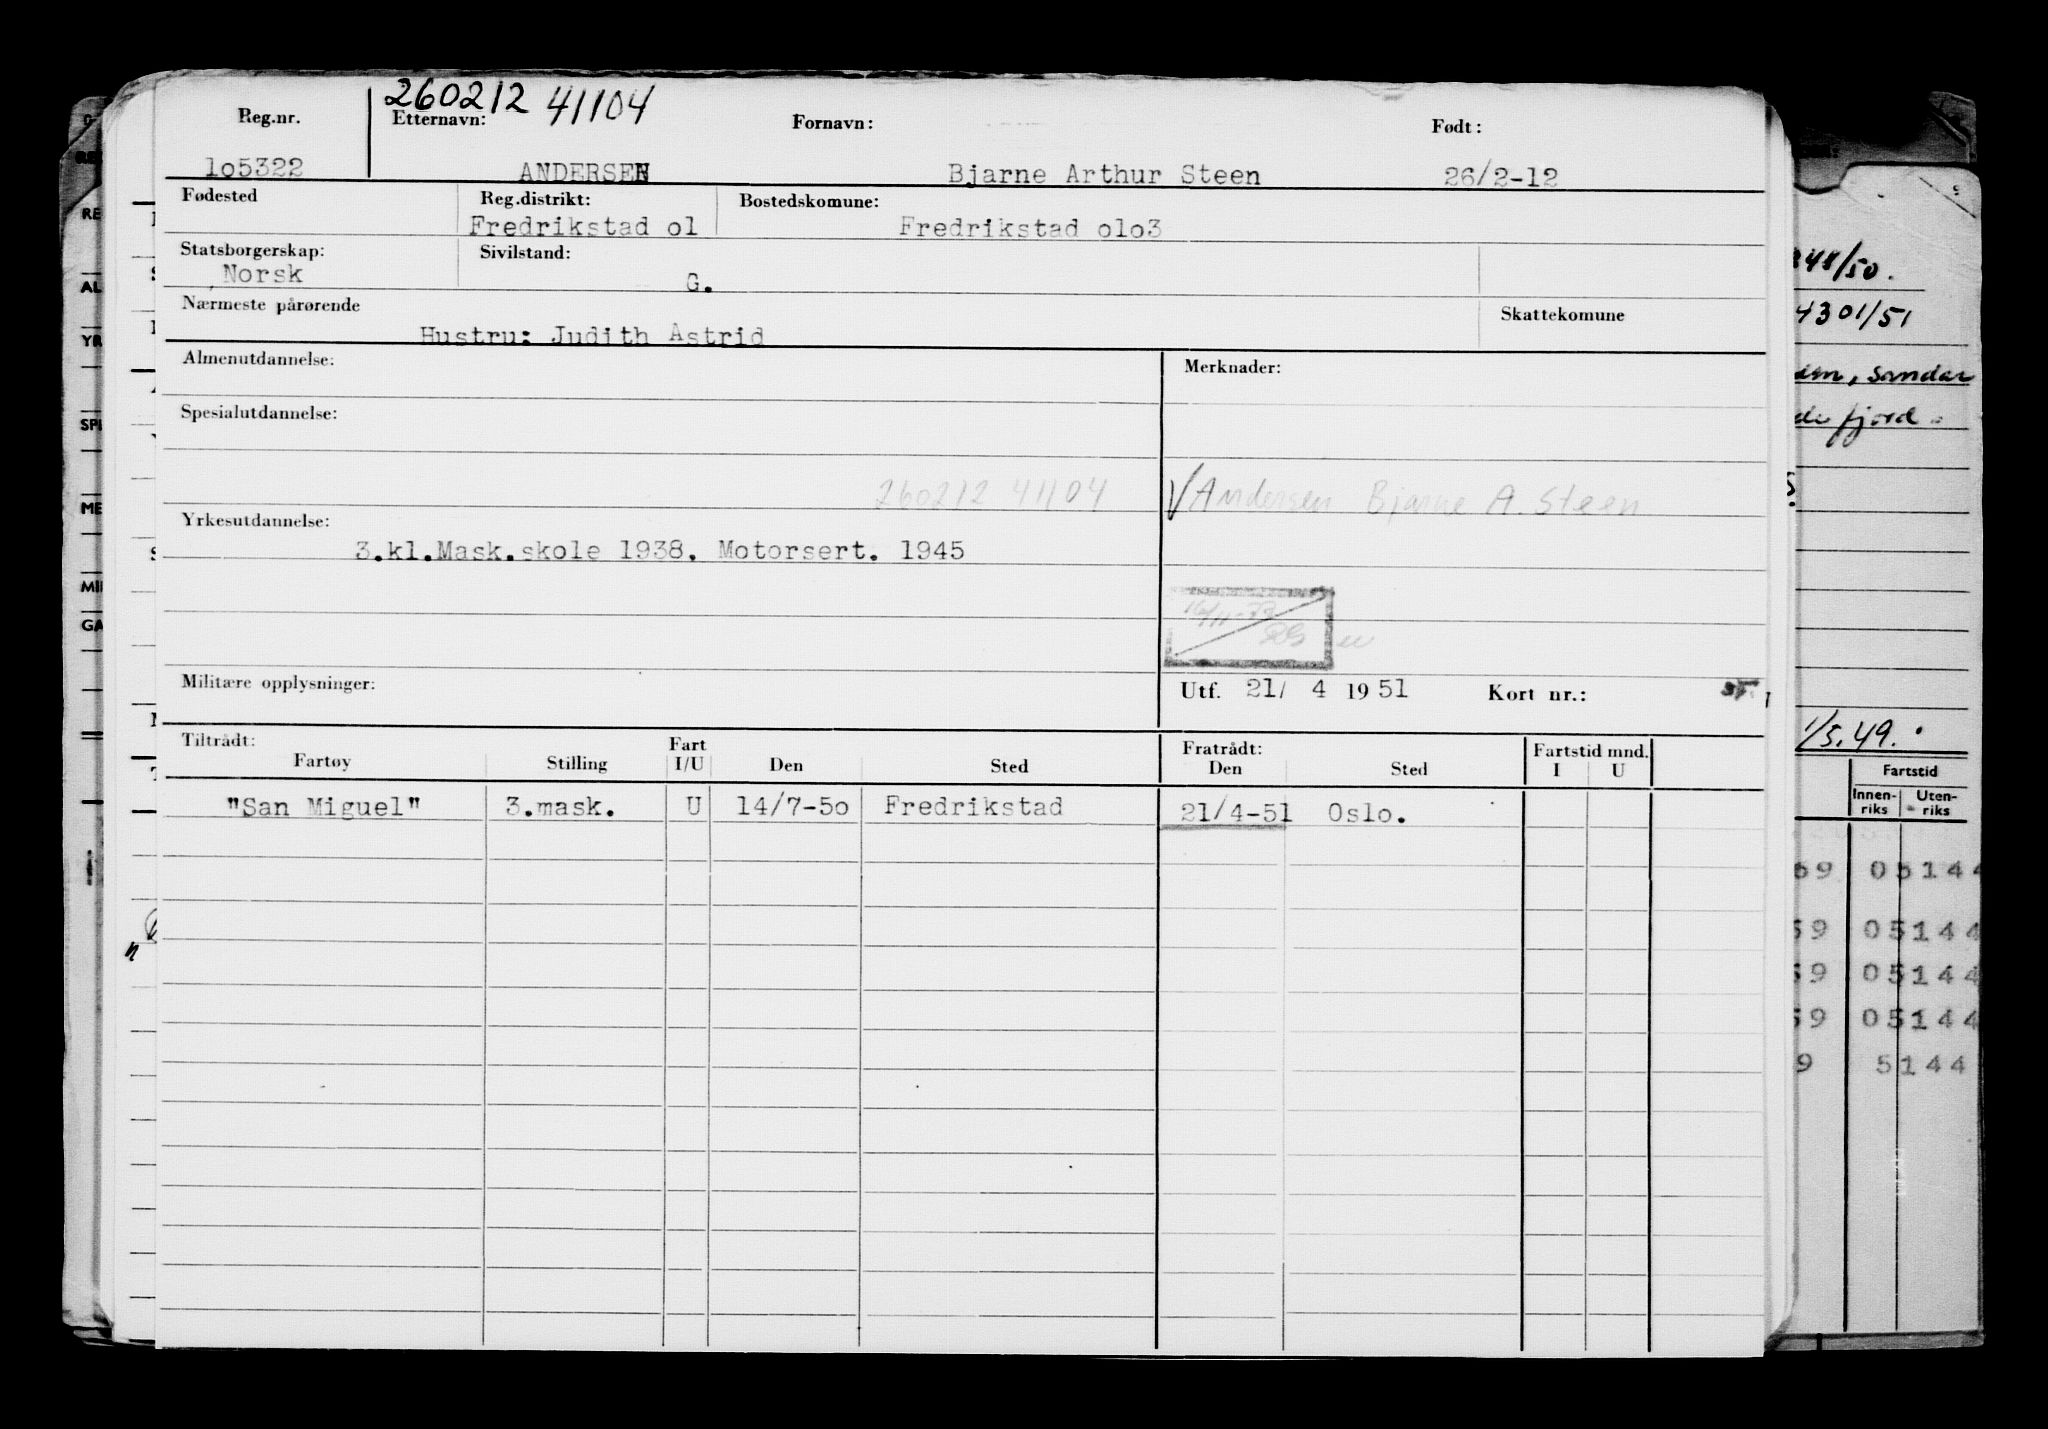 260212 41104
Reg.nr. Etternavn: Fornavn: Født:
lo5322 ANDERSEN Bjarne Arthur Steen 26/2-12
Fødested Reg.distrikt: Bostedskomune:
Fredrikstad ol Fredrikstad olo3
Statsborgerskap: Sivilstand:
Norsk G.
Nærmeste pårørende Skattekomune
Hustru: Judith Astrid
Almenutdannelse: Merknader:
Spesialutdannelse:
260212 41104 Andersen Bjarne A. Steen
Yrkesutdannelse:
3.kl.Mask.skole 1938. Motorsert. 1945
16/11-73
Militære opplysninger: Utf. 21/ 4 1951 Kort nr.:
Tiltrådt: Fart Fratrådt: Fartstid mnd.
Fartøy Stilling I/U Den Sted Den Sted I U
"San Miguel" 3.mask. U 14/7-5o Fredrikstad 21/4-51 Oslo.
48/50.
4301/51
, Sandar
fjord.
1/5.49.
Fartstid
Innen-riks Uten-riks
69 05144
59 05144
59 05144
59 05144
9 5144
RE
AL
YR
SPE
ME
MIL
GA